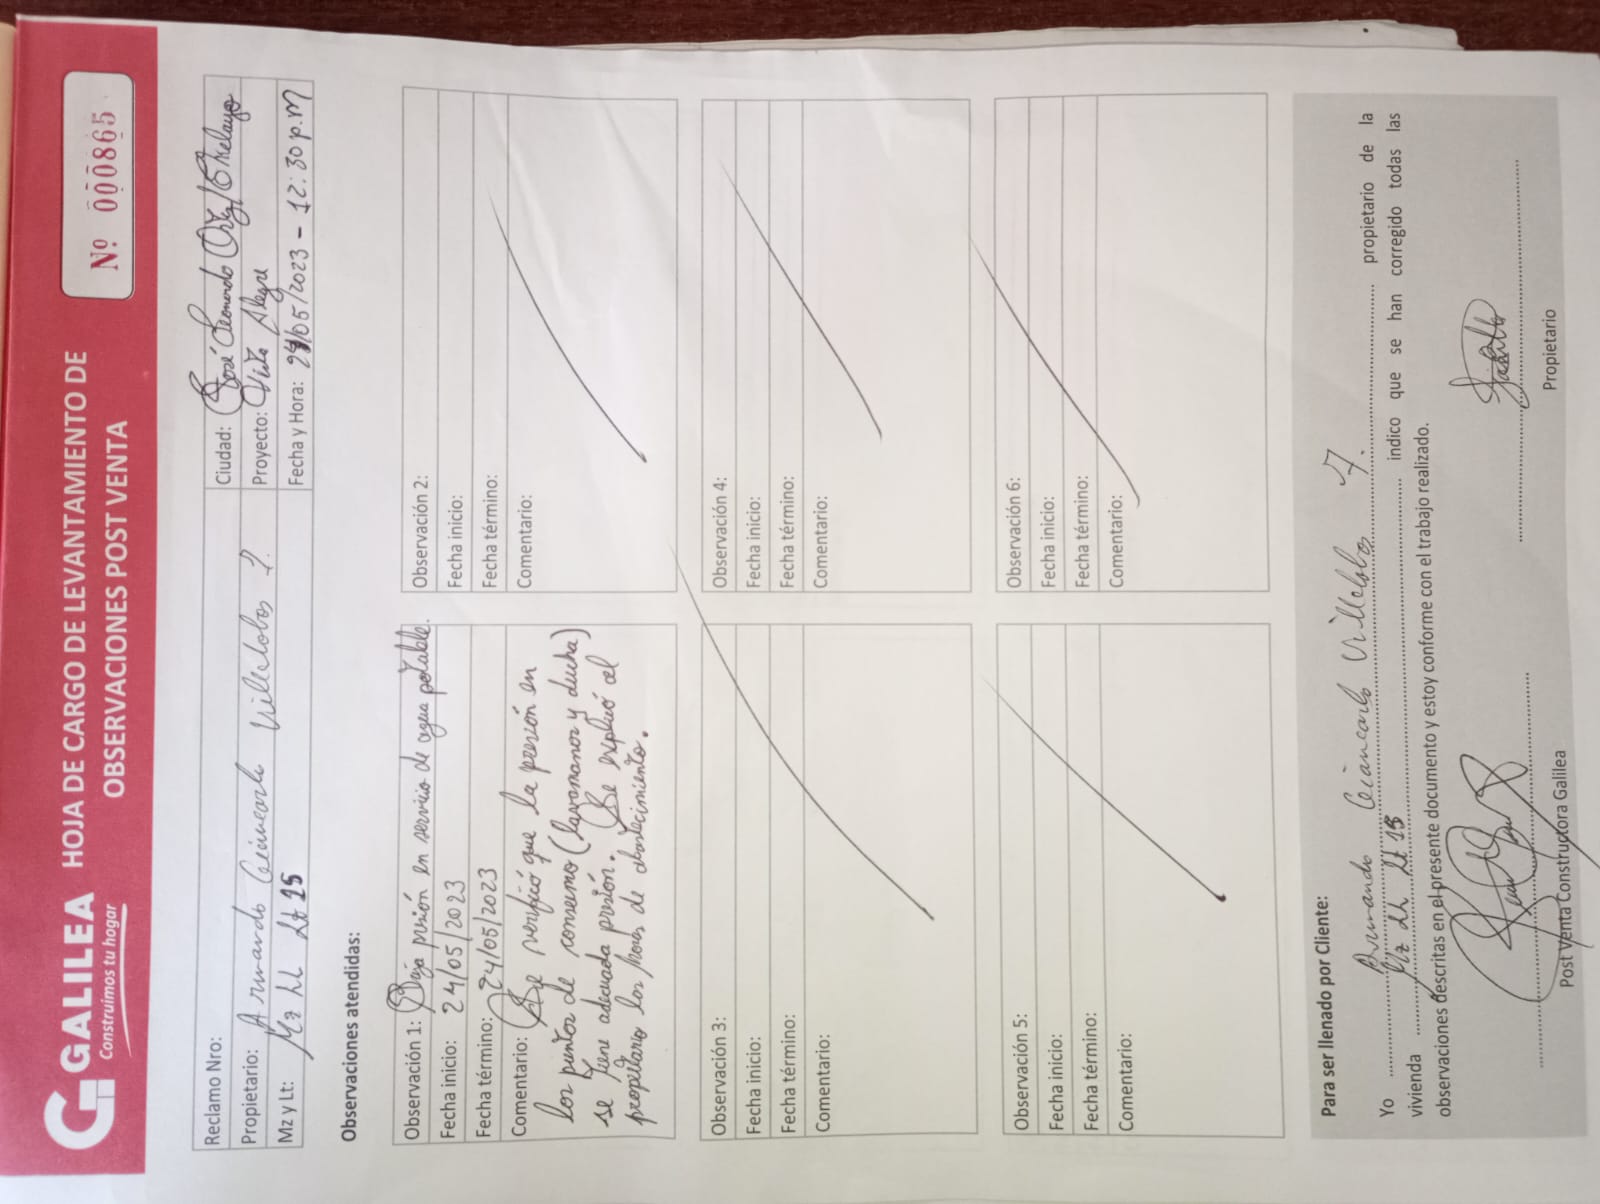 GALILEA
Construimos tu hogar
HOJA DE CARGO DE LEVANTAMIENTO DE
OBSERVACIONES POST VENTA
Nº 000865
Reclamo Nro:
Ciudad: José Leonardo Ortiz/Chiclayo
Propietario: Armando Giancarlo Villalobos
Proyecto: Vista Alegre
Mz y Lt: Mz LL Lt 15
Fecha y Hora: 24/05/2023 - 12:30 p.m
Observaciones atendidas:
Observación 1: Baja presión en servicio de agua potable.
Fecha inicio: 24/05/2023
Fecha término: 24/05/2023
Comentario: Se verificó que la presión en
los puntos de consumo (lavamanos y ducha)
se tiene adecuada presión. Se explicó al
propietario los horas de abastecimiento.
Observación 2:
Fecha inicio:
Fecha término:
Comentario:
Observación 3:
Fecha inicio:
Fecha término:
Comentario:
Observación 4:
Fecha inicio:
Fecha término:
Comentario:
Observación 5:
Fecha inicio:
Fecha término:
Comentario:
Observación 6:
Fecha inicio:
Fecha término:
Comentario:
Para ser llenado por Cliente:
Yo Armando Giancarlo Villalobos propietario de la
vivienda Mz LL Lt 15 indico que se han corregido todas las
observaciones descritas en el presente documento y estoy conforme con el trabajo realizado.
Post Venta Constructora Galilea
Propietario